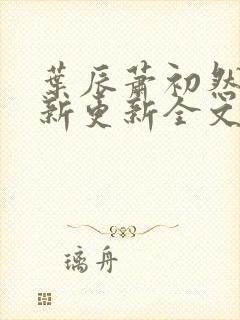 葉辰蕭初然
新更新全文
璃舟